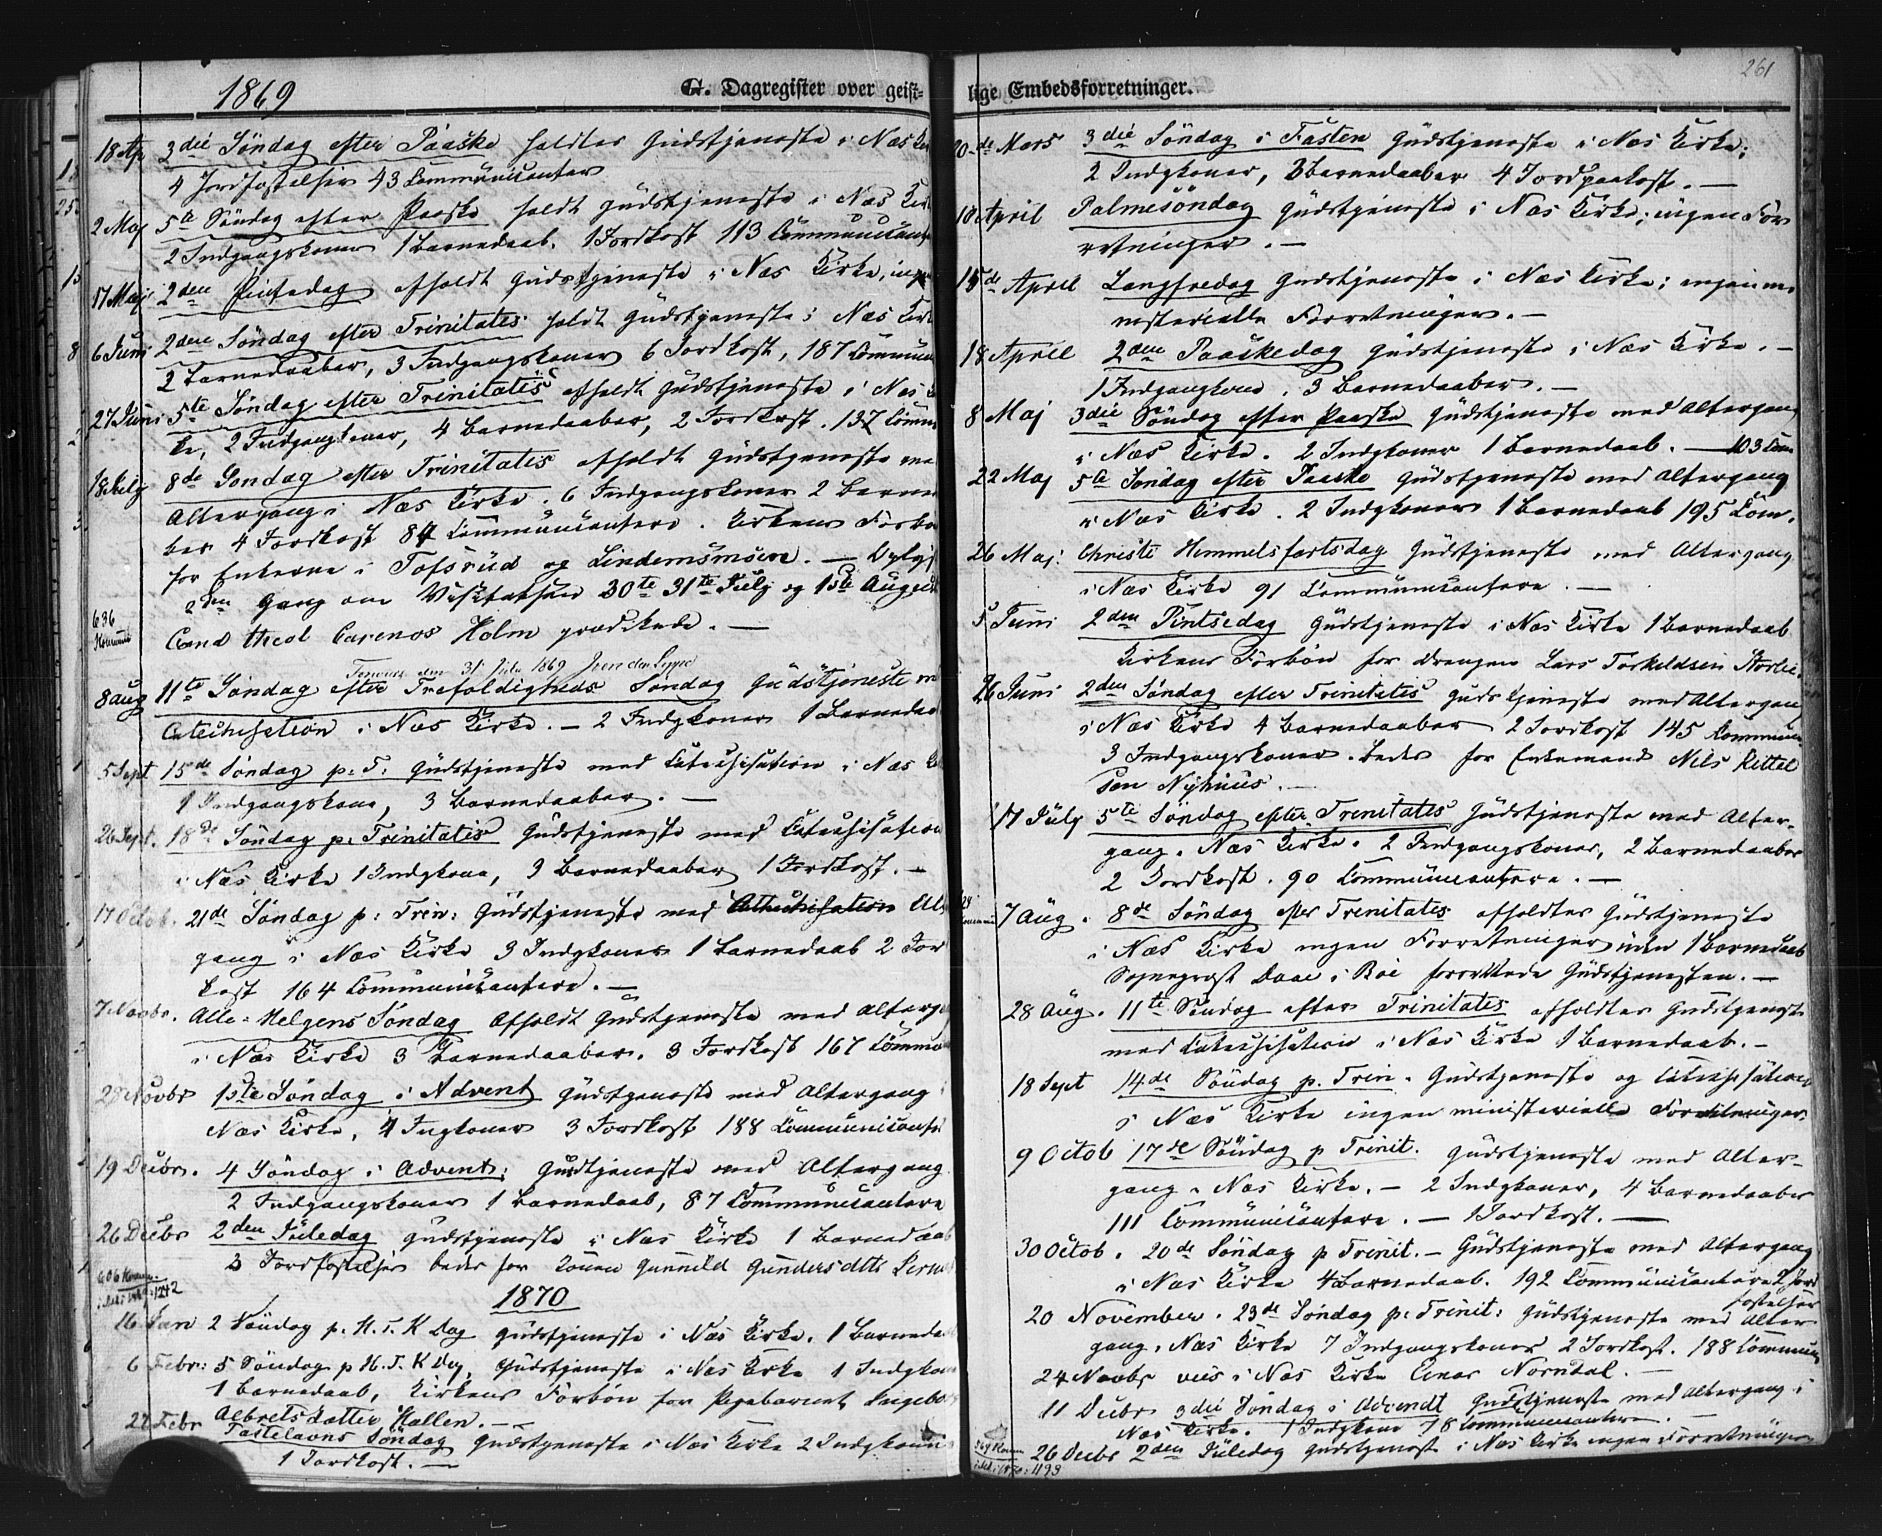 1869
G. Dagregister over geist-
18 Ap 3die Søndag efter Paaske holdtes Gudstjeneste i Næs
4 Jordfæstelser 43 Communicanter
2 Maj 5te Søndag efter Paaske holdt Gudstjeneste i Næs
2 Indgangskoner 1 Barnedaab. 1 Jordkast 113
17 Maj 2den Pintsedag afholdt Gudstjeneste i Næs Kirke,
6 Juni 2den Søndag efter Trinitatis holdt Gudstjeneste i Næs
2 Barnedaaber, 3 Indgangskoner 6 Jordkast, 187
27 Juni 5te Søndag efter Trinitatis afholdt Gudstjeneste i Næs
ke, 2 Indgangskoner, 4 Barnedaaber, 2 Jordkast. 137
18 July 8de Søndag efter Trinitatis afholdt Gudstjeneste
Altergang i Næs Kirke. 6 Indgangskoner 2
ber 4 Jordkast 84 Communicantere. Kirkens
for Enkerne i Tofsrud og
2den Gang om Visitatsen 30te 31te July og 1ste August
636
Cand theol Carenos Holm prædikede. —
8 aug 11te Søndag efter Trefoldigheds Søndag Gudstjeneste
Catechisation i Næs Kirke. — 2 Indgkoner 1
5 Sept 15de Søndag p. T: Gudstjeneste med Catechisation i Næs
1 Indgangskone, 3 Barnedaaber. —
26 Sept. 18de Søndag p. Trinitatis Gudstjeneste med Catechisation
i Næs Kirke 1 Indgkone, 3 Barnedaaber 1 Jordkast. —
17 Octob. 21de Søndag p: Trin: Gudstjeneste med Cathechisation
gang i Næs Kirke 3 Indgkoner 1 Barnedaab 2 Jor
kast 164 Communicantere. —
7 Novbr. Alle-Helgens Søndag Afholdt Gudstjeneste med
i Næs Kirke 3 Barnedaaber. 3 Jordkast 167
28 Novbr 1ste Søndag i Advent Gudstjeneste med Altergang
Næs Kirke, 4 Ingkoner 3 Jordkast 188
19 Decbr. 4 Søndag i Advent: Gudstjeneste med Altergang
2 Indgangskoner 1 Barnedaab, 87 Communicantere
26 Decbr 2den Juledag Gudstjeneste i Næs Kirke 1 Barnedaab
3 Jordfæstelser beder for Konen Gunnild Gundersdtt
1870
16 Jan 2 Søndag p. H. T. K Dag Gudstjeneste i Næs Kirke. 1
6 Febr: 5 Søndag p H. T. K Dag, Gudstjeneste i Næs Kirke 1
1 Barnedaab, Kirkens Forbøn for Pigebarnet
Albretsdatter Hallen. —
27 Febr Fastelavns Søndag Gudstjeneste i Næs Kirke 2
1 Jordkast. —
lige Embedsforretninger.
261
20de Mars 3die Søndag i Fasten Gudstjeneste i Næs Kirke;
2 Indgkoner, Barnedaaber 4 Jordpaakast. —
10 April Palmesöndag Gudstjeneste i Næs Kirke; ingen For
retninger. —
15de April Langfredag Gudstjeneste i Næs Kirke; ingen mi
nisterielle Forretninger. —
18 April 2den Paaskedag Gudstjeneste i Næs Kirke. —
1 Indgangkone. 3 Barnedaaber. —
8 Maj 3die Søndag efter Paaske Gudstjeneste med Altergang
i Næs Kirke. 2 Indgkoner 1 Barnedaab. — 103
22 Maj 5te Søndag efter Paaske Gudstjeneste med Altergang
i Næs Kirke. 2 Indgkoner 1 Barnedaab 195 Com.
26 Maj: Christi Himmelsfartsdag Gudstjeneste med Altergang
i Næs Kirke 91 Communicantere. —
5 Juni 2den Pintsedag Gudstjeneste i Næs Kirke 1 Barnedaab
Kirkens Forbøn for Drengen Lars Torkeldsen
26 Juni 2den Søndag efter Trinitatis Gudstjeneste med Altergang
i Næs Kirke 4 Barnedaaber 2 Jordkast 145
3 Indgangskoner. Beder for Enkemand Nils Kittel
sen Nyhuus. —
17 July 5te Søndag efter Trinitatis Gudstjeneste med Alter-
gang i Næs Kirke. 2 Indgangskoner, 2 Barnedaaber
2 Jordkast. 90 Communicantere. —
7 Aug. 8de Søndag efter Trinitatis afholdtes Gudstjeneste
i Næs Kirke ingen Forretninger uden 1 Barnedaab
Sogneprest Daae i Bøe forrettede Gudstjenesten. —
28 Aug. 11te Søndag efter Trinitatis afholdtes Gudstjenest
med Catechisation i Næs Kirke 1 Barnedaab. —
18 Sept 14de Søndag p. Trin. Gudstjeneste og Catechisation
i Næs Kirke ingen ministerielle Forretninger.
9 Octob 17de Søndag p Trinit. Gudstjeneste med Alter-
gang i Næs Kirke. — 2 Indgkoner, 4 Barnedaaber
111 Communicantere. — 1 Jordkast. —
30 Octob. 20de Søndag p Trinit. — Gudstjeneste med Altergang
i Næs Kirke 4 Barnedaab. 192 Communicantere 2 Jord
fæstelser
20 November. 23de Søndag p: Trinit: Gudstjeneste med Alter
gang i Næs Kirke 7 Indgangskoner 2 Jordkast. 188
24 Novbr viet i Næs Kirke Einar Norndal. —
11 Decbr 3die Søndag i Advendt Gudstjeneste med Altergang i
Næs Kirke. 1 Indgkone 78 Communicantere. —
26 Decbr 2den Juledag Gudstjenest i Næs Kirke ingen Forretninger